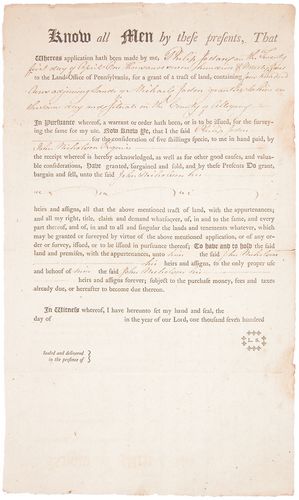 Know all Men by these presents, That
Whereas application hath been made by me, Philip Jodon on the Twenty
first day of April One thousand seven hundred & Ninety four
to the Land-Office of Pennsylvania, for a grant of a tract of land, containing four hundred
Acres adjoining Lands of Michael
day and situate in the County of
In Pursuance whereof, a warrant or order hath been, or is to be, issued for the survey-
ing the same for my use. Now Know Ye, that I the said Philip Jodon
for the consideration of five shillings specie, to me in hand paid, by
John Nicholson Esquire
the receipt whereof is hereby acknowledged, as well as for other good causes, and valua-
ble considerations, Have granted, bargained and sold, and by these Presents Do grant,
bargain and sell, unto the said John Nicholson his
heirs and assigns, all that the above mentioned tract of land, with the appertenances;
and all my right, title, claim and demand whatsoever, of, in and to the same, and every
part thereof, and of, in and to all and singular the lands and tenements whatever, which
may be granted or surveyed by virtue of the above mentioned application, or of any or-
der or survey, issued, or to be issued in pursuance thereof; To have and to hold the said
land and premises, with the appertenances, unto him the said John Nicholson
his heirs and assigns, to the only proper use
and behoof of him the said John Nicholson his
heirs and assigns forever; subject to the purchase money, fees and taxes
already due, or hereafter to become due thereon.
In Witness whereof, I have hereunto set my hand and seal, the
day of in the year of our Lord, one thousand seven hundred
L. S.
Sealed and delivered
in the presence of }